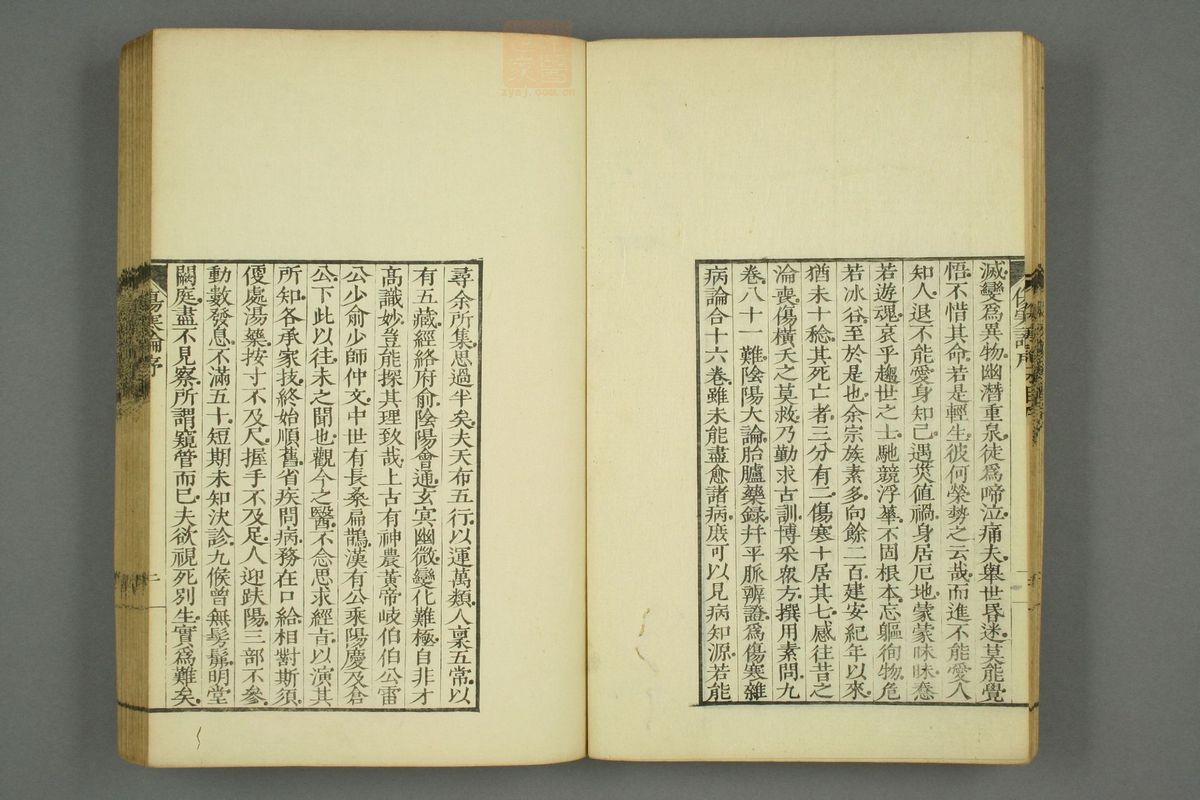 滅變爲異物幽潛重泉徒爲啼泣痛夫舉世昏迷莫能覺
悟不惜其命若是輕生彼何榮勢之云哉而進不能愛人
知人退不能愛身知己遇災值禍身居厄地蒙蒙昧昧惷
若遊魂哀乎趨世之士馳競浮華不固根本忘軀徇物危
若冰谷至於是也余宗族素多向餘二百建安紀年以來
猶未十稔其死亡者三分有二傷寒十居其七感往昔之
淪喪傷橫夭之莫救乃勤求古訓博采衆方撰用素問九
卷八十一難陰陽大論胎臚藥錄幷平脈辨證爲傷寒雜
病論合十六卷雖未能盡愈諸病庶可以見病知源若能
尋余所集思過半矣夫天布五行以運萬類人稟五常以
有五藏經絡府俞陰陽會通玄冥幽微變化難極自非才
高識妙豈能探其理致哉上古有神農黃帝岐伯伯公雷
公少俞少師仲文中世有長桑扁鵲漢有公乘陽慶及倉
公下此以往未之聞也觀今之醫不念思求經旨以演其
所知各承家技終始順舊省疾問病務在口給相對斯須
便處湯藥按寸不及尺握手不及足人迎趺陽三部不參
動數發息不滿五十短期未知決診九候曾無髣髴明堂
闕庭盡不見察所謂窺管而已夫欲視死別生實爲難矣
傷寒論序
二
zysj.com.cn